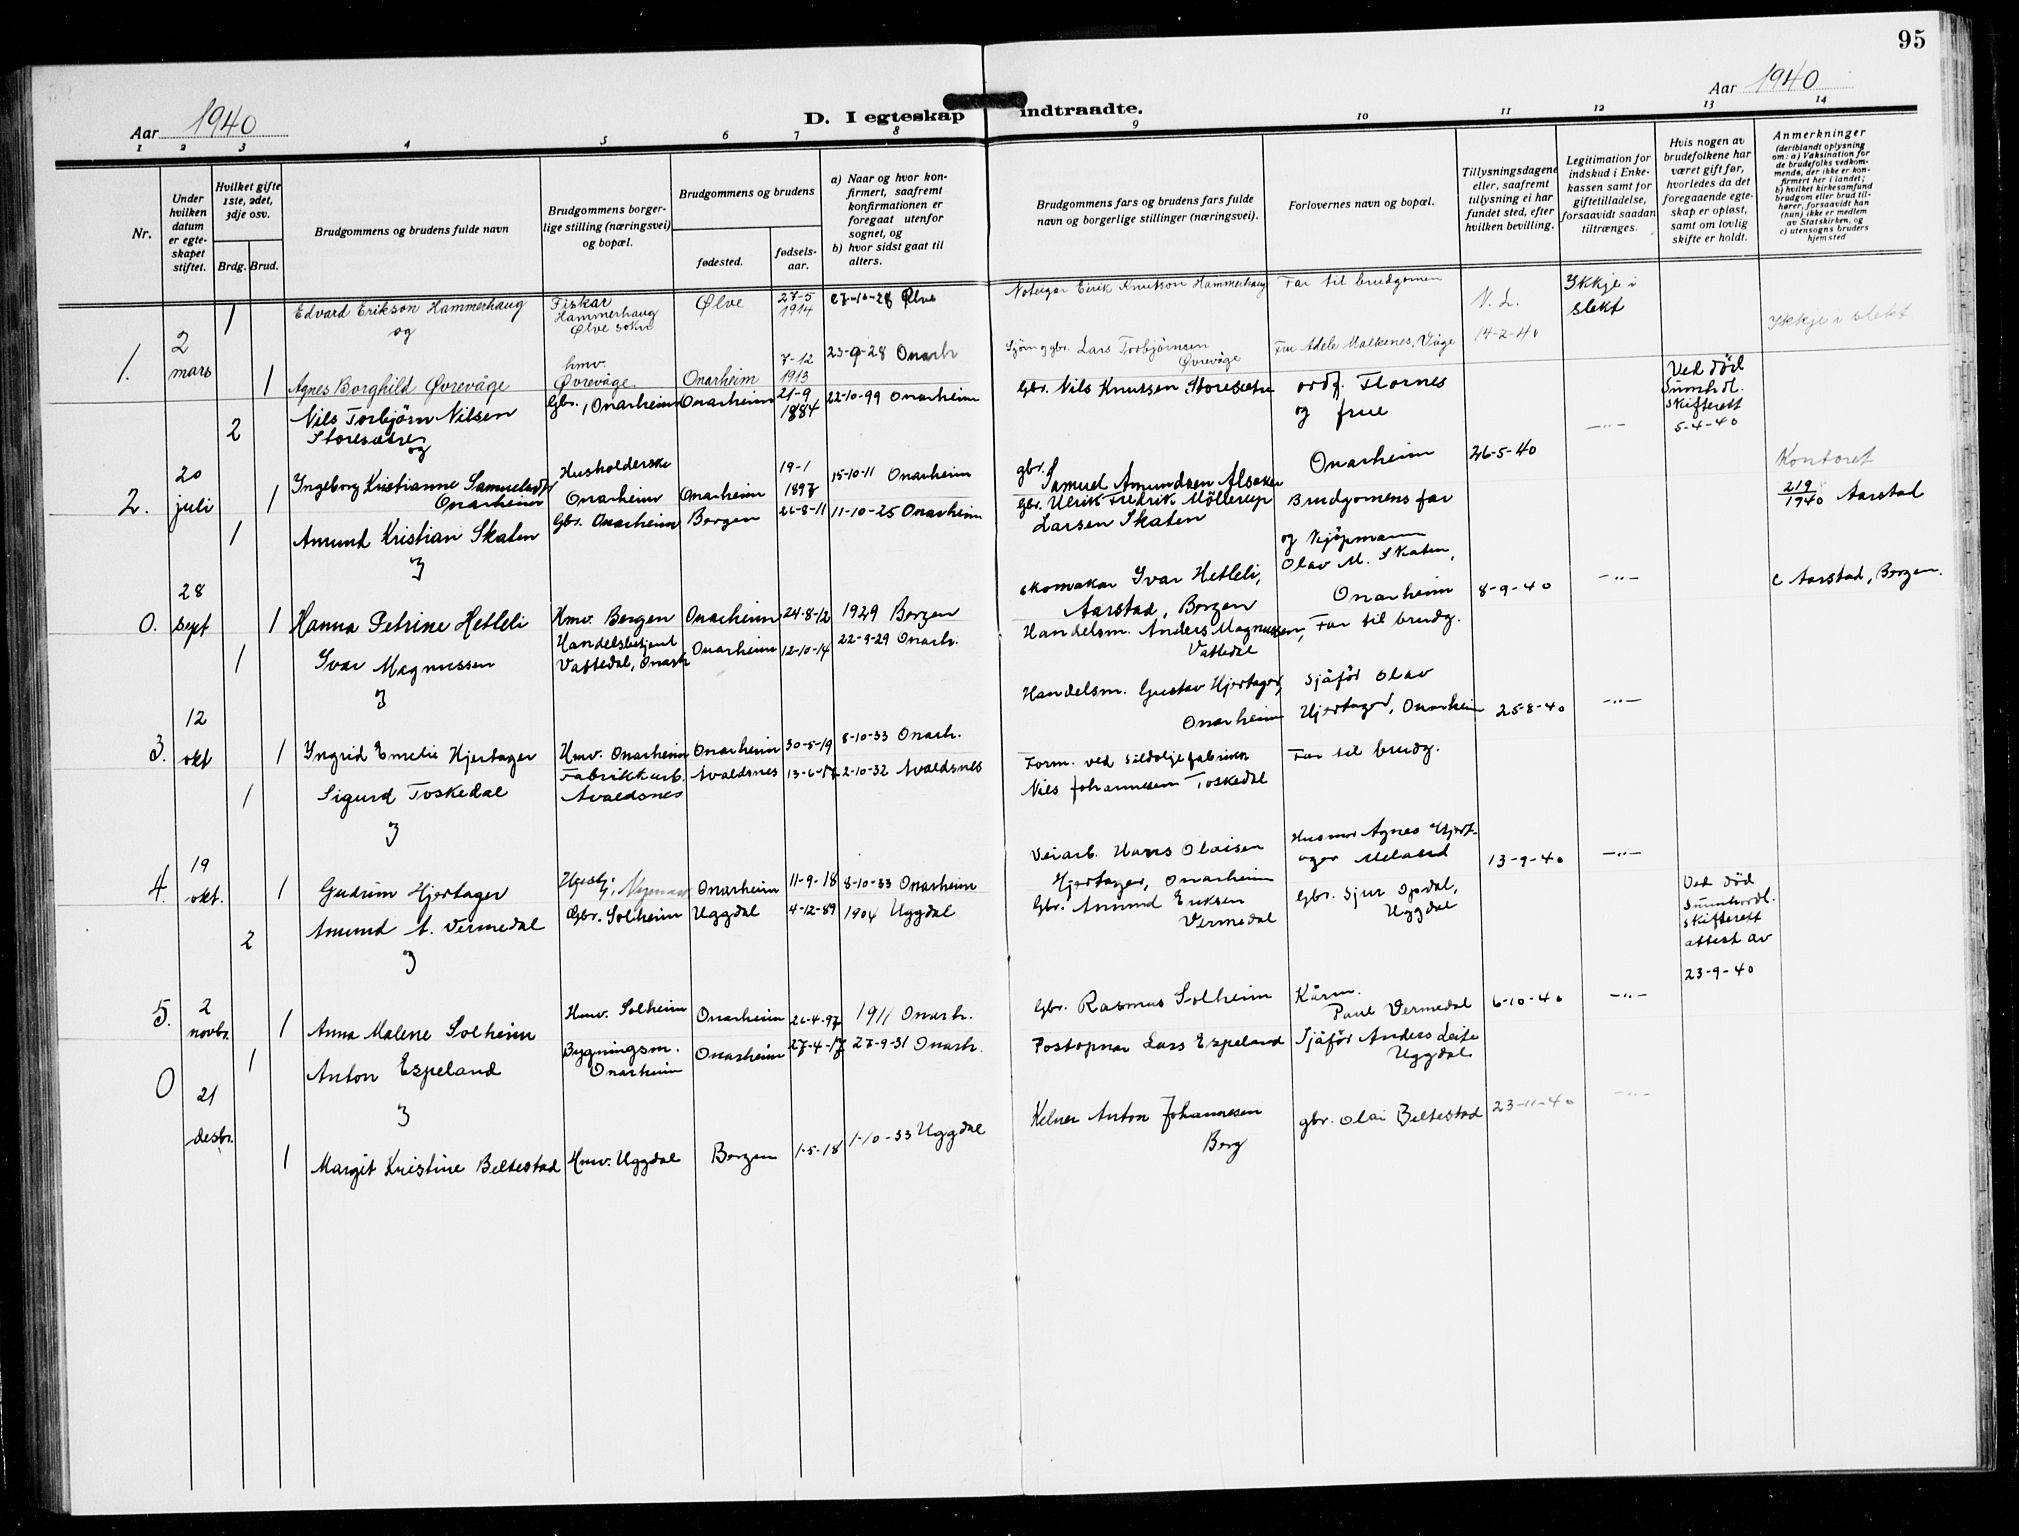 95
Aar 1940
D. I egteskap indtraadte.
Aar 1940
1 2 3 4 5 6 7 8 9 10 11 12 13 14
Nr.
Under hvilken datum er egteskapet stiftet.
Hvilket gifte 1ste, 2det, 3dje osv.
Brdg. Brud.
Brudgommens og brudens fulde navn
Brudgommens borgerlige stilling (næringsvei) og bopæl.
Brudgommens og brudens
fødested.
fødselsaar.
a) Naar og hvor konfirmert, saafremt konfirmationen er foregaat utenfor sognet, og
b) hvor sidst gaat til alters.
Brudgommens fars og brudens fars fulde navn og borgerlige stillinger (næringsvei).
Forlovernes navn og bopæl.
Tillysningsdagene eller, saafremt tillysning ei har fundet sted, efter hvilken bevilling.
Legitimation for indskud i Enkekassen samt for giftetilladelse, forsaavidt saadan tiltrænges.
Hvis nogen av brudefolkene har været gift før, hvorledes da det foregaaende egteskap er opløst, samt om lovlig skifte er holdt.
Anmerkninger
(deriblandt oplysning om: a) Vaksination for de brudefolks vedkommende, der ikke er konfirmert her i landet; b) hvilket kirkesamfund brudgom eller brud tilhører, forsaavidt han (hun) ikke er medlem av Statskirken, og c) utensogns bruders hjemsted
1 Edvard Erikson Hammerhaug Fiskar Hammerhaug Ølve sokn Ølve 27-5 1914 27-10-28 Ølve Noteigar Eirik Knutson Hammerhaug Far til brudgomen V. L. Ikkje i slekt
og
1. 2 mars 1 Agnes Borghild Øvrevåge hmv. Øvrevåge Onarheim 7-12 1913 23-9-28 Onarh Sjöm og gbr. Lars Torbjørnsen Øvrevåge Fru Adele Malkenes, Våge 14-2-40 Ikkje i slekt
2 Nils Torbjørn Nilsen Storesætre Gbr., Onarheim Onarheim 21-9 1884 22-10-99 Onarheim Gbr. Nils Knutsen Storesætre ordf. Flornes og frue —"— Ved död Sunnh dl. skifterett 5-4-40
og
2. 20 juli 1 Ingeborg Kristianne Samuelsdtr Onarheim Husholderske Onarheim Onarheim 19-1 1897 15-10-11 Onarheim gbr. Samuel Amundsen Alsaker Onarheim 26-5-40 Kontoret
1 Amund Kristian Skaten Gbr. Onarheim Bergen 26-8-11 11-10-25 Onarheim Gbr. Ulrik Fredrik Möllerup Larsen Skaten Brudgomens far 219/1940 Aarstad
og
0. 28 sept 1 Hanna Petrine Hetleli Hmv. Bergen Onarheim 24-8-12 1929 Bergen skomakar Ivar Hetleli, Aarstad, Bergen og Kjøpmann Olav M. Skaten, Onarheim 8-9-40 —"— c Aarstad, Bergen.
1 Ivar Magnussen Handelsbetjent Vattedal, Onarh Onarheim 12-10-14 22-9-29 Onarh. Handelsm. Anders Magnussen, Vattedal Far til brudg.
og
3. 12 okt 1 Ingrid Emelie Hjertager Hmv. Onarheim Onarheim 30-5-19 8-10-33 Onarh. Handelsm. Gustav Hjertager, Onarheim Sjåför Olav Hjertager, Onarheim 25-8-40 —"—
1 Sigurd Toskedal Fabrikkarb. Avaldsnes Avaldsnes 13-6-17 2-10-32 Avaldsnes Form. ved sildoljefabrikk Nils Johannesen Toskedal Far til brudg.
og
4. 19 okt. 1 Gudrun Hjertager Onarheim 11-9-18 8-10-33 Onarheim Veiarb. Hans Olaisen Hjertager, Onarheim Husmor Agnes Hjertager Meland 13-9-40 —"—
2 Amund A. Vermedal Gbr. Solheim Uggdal 4-12-89 1904 Uggdal Gbr. Amund Eriksen Vermedal Gbr. Sjur Opdal, Uggdal Ved död Sunnhordl. skifterett attest av 23-9-40
og
5. 2 novbr. 1 Anna Malene Solheim Hmv. Solheim Onarheim 26-4-97 1911 Onarh. Gbr. Rasmus Solheim Paul Vermedal 6-10-40 —"—
1 Anton Espeland Bygningsm. Onarheim Onarheim 27-4-17 27-9-31 Onarh. Postopnar Lars Espeland Sjåför Anders Leite Uggdal
og
0 21 desbr. 1 Margit Kristine Beltestad Hmv. Uggdal Bergen 1-5-18 1-10-33 Uggdal Kelner Anton Johannesen Berg gbr. Olai Beltestad 23-11-40 —"—